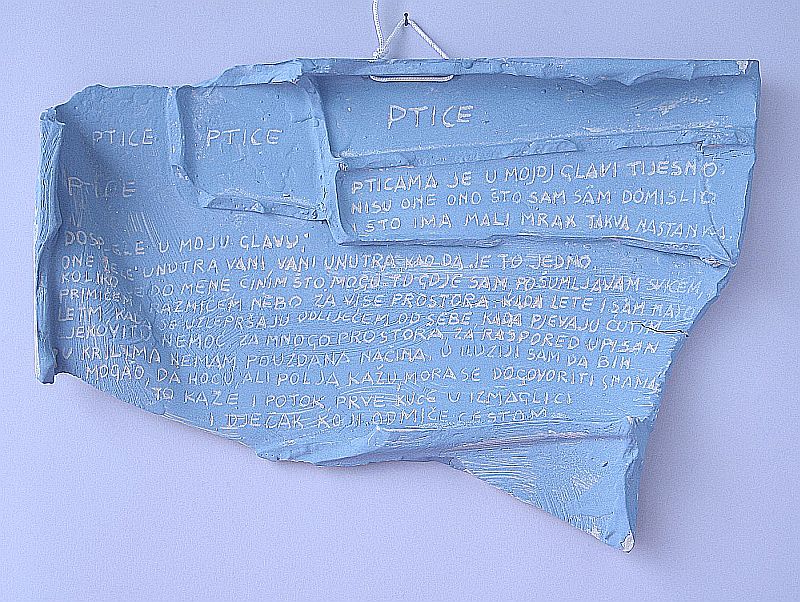 PTICE
PTICE PTICE
PTICE
PTICAMA JE U MOJOJ GLAVI TIJESNO.
NISU ONE ONO ŠTO SAM SÂM DOMISLIO
I ŠTO IMA MALI MRAK TAKVA NASTANKA.
DOSPJELE U MOJU GLAVU,
ONE LETE UNUTRA VANI VANI UNUTRA KAO DA JE TO JEDNO.
KOLIKO JE DO MENE ČINIM ŠTO MOGU: TU GDJE SAM POŠUMLJAVAM SVIJEĆEM,
PRIMIČEM RAZMIČEM NEBO ZA VIŠE PROSTORA. KADA LETE I SAM MALO
LETIM, KADA SE UZLEPRŠAJU ODLIJEĆEM OD SEBE, KADA PJEVAJU ĆUTIM
LJEKOVITU NEMOĆ. ZA MNOGO PROSTORA, ZA RASPORED UPISAN
U KRILIMA NEMAM POUZDANA NAČINA. U ILUZIJI SAM DA BIH
MOGAO, DA HOĆU, ALI POLJA KAŽU, MORA SE DOGOVORITI S NAMA,
TO KAŽE I POTOK, PRVE KUĆE U IZMAGLICI
I DJEČAK KOJI ODMIČE CESTOM.